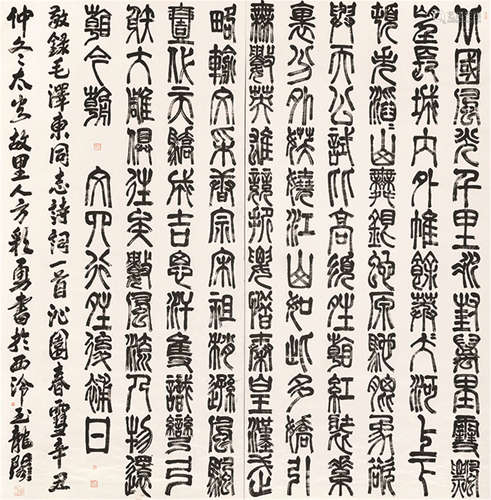 北國風光千里冰封萬里雪飄
望長城內外惟餘莽大河上下
頓失滔山舞銀蛇原馳蠟象欲
與天公試比高須晴看紅裝素
裹分外妖嬈江山如此多嬌引
無數英雄競折腰惜秦皇漢武
略輸文采唐宗宋祖稍遜風騷
壹代天驕成吉思汗隻識彎弓
射大雕俱往矣數風流人物還
看今朝 文四行晴後補日
敬錄毛澤東同志詩詞一首沁園春雪辛丑
仲冬太炎故里人方彩勇書於西泠玉龍閣